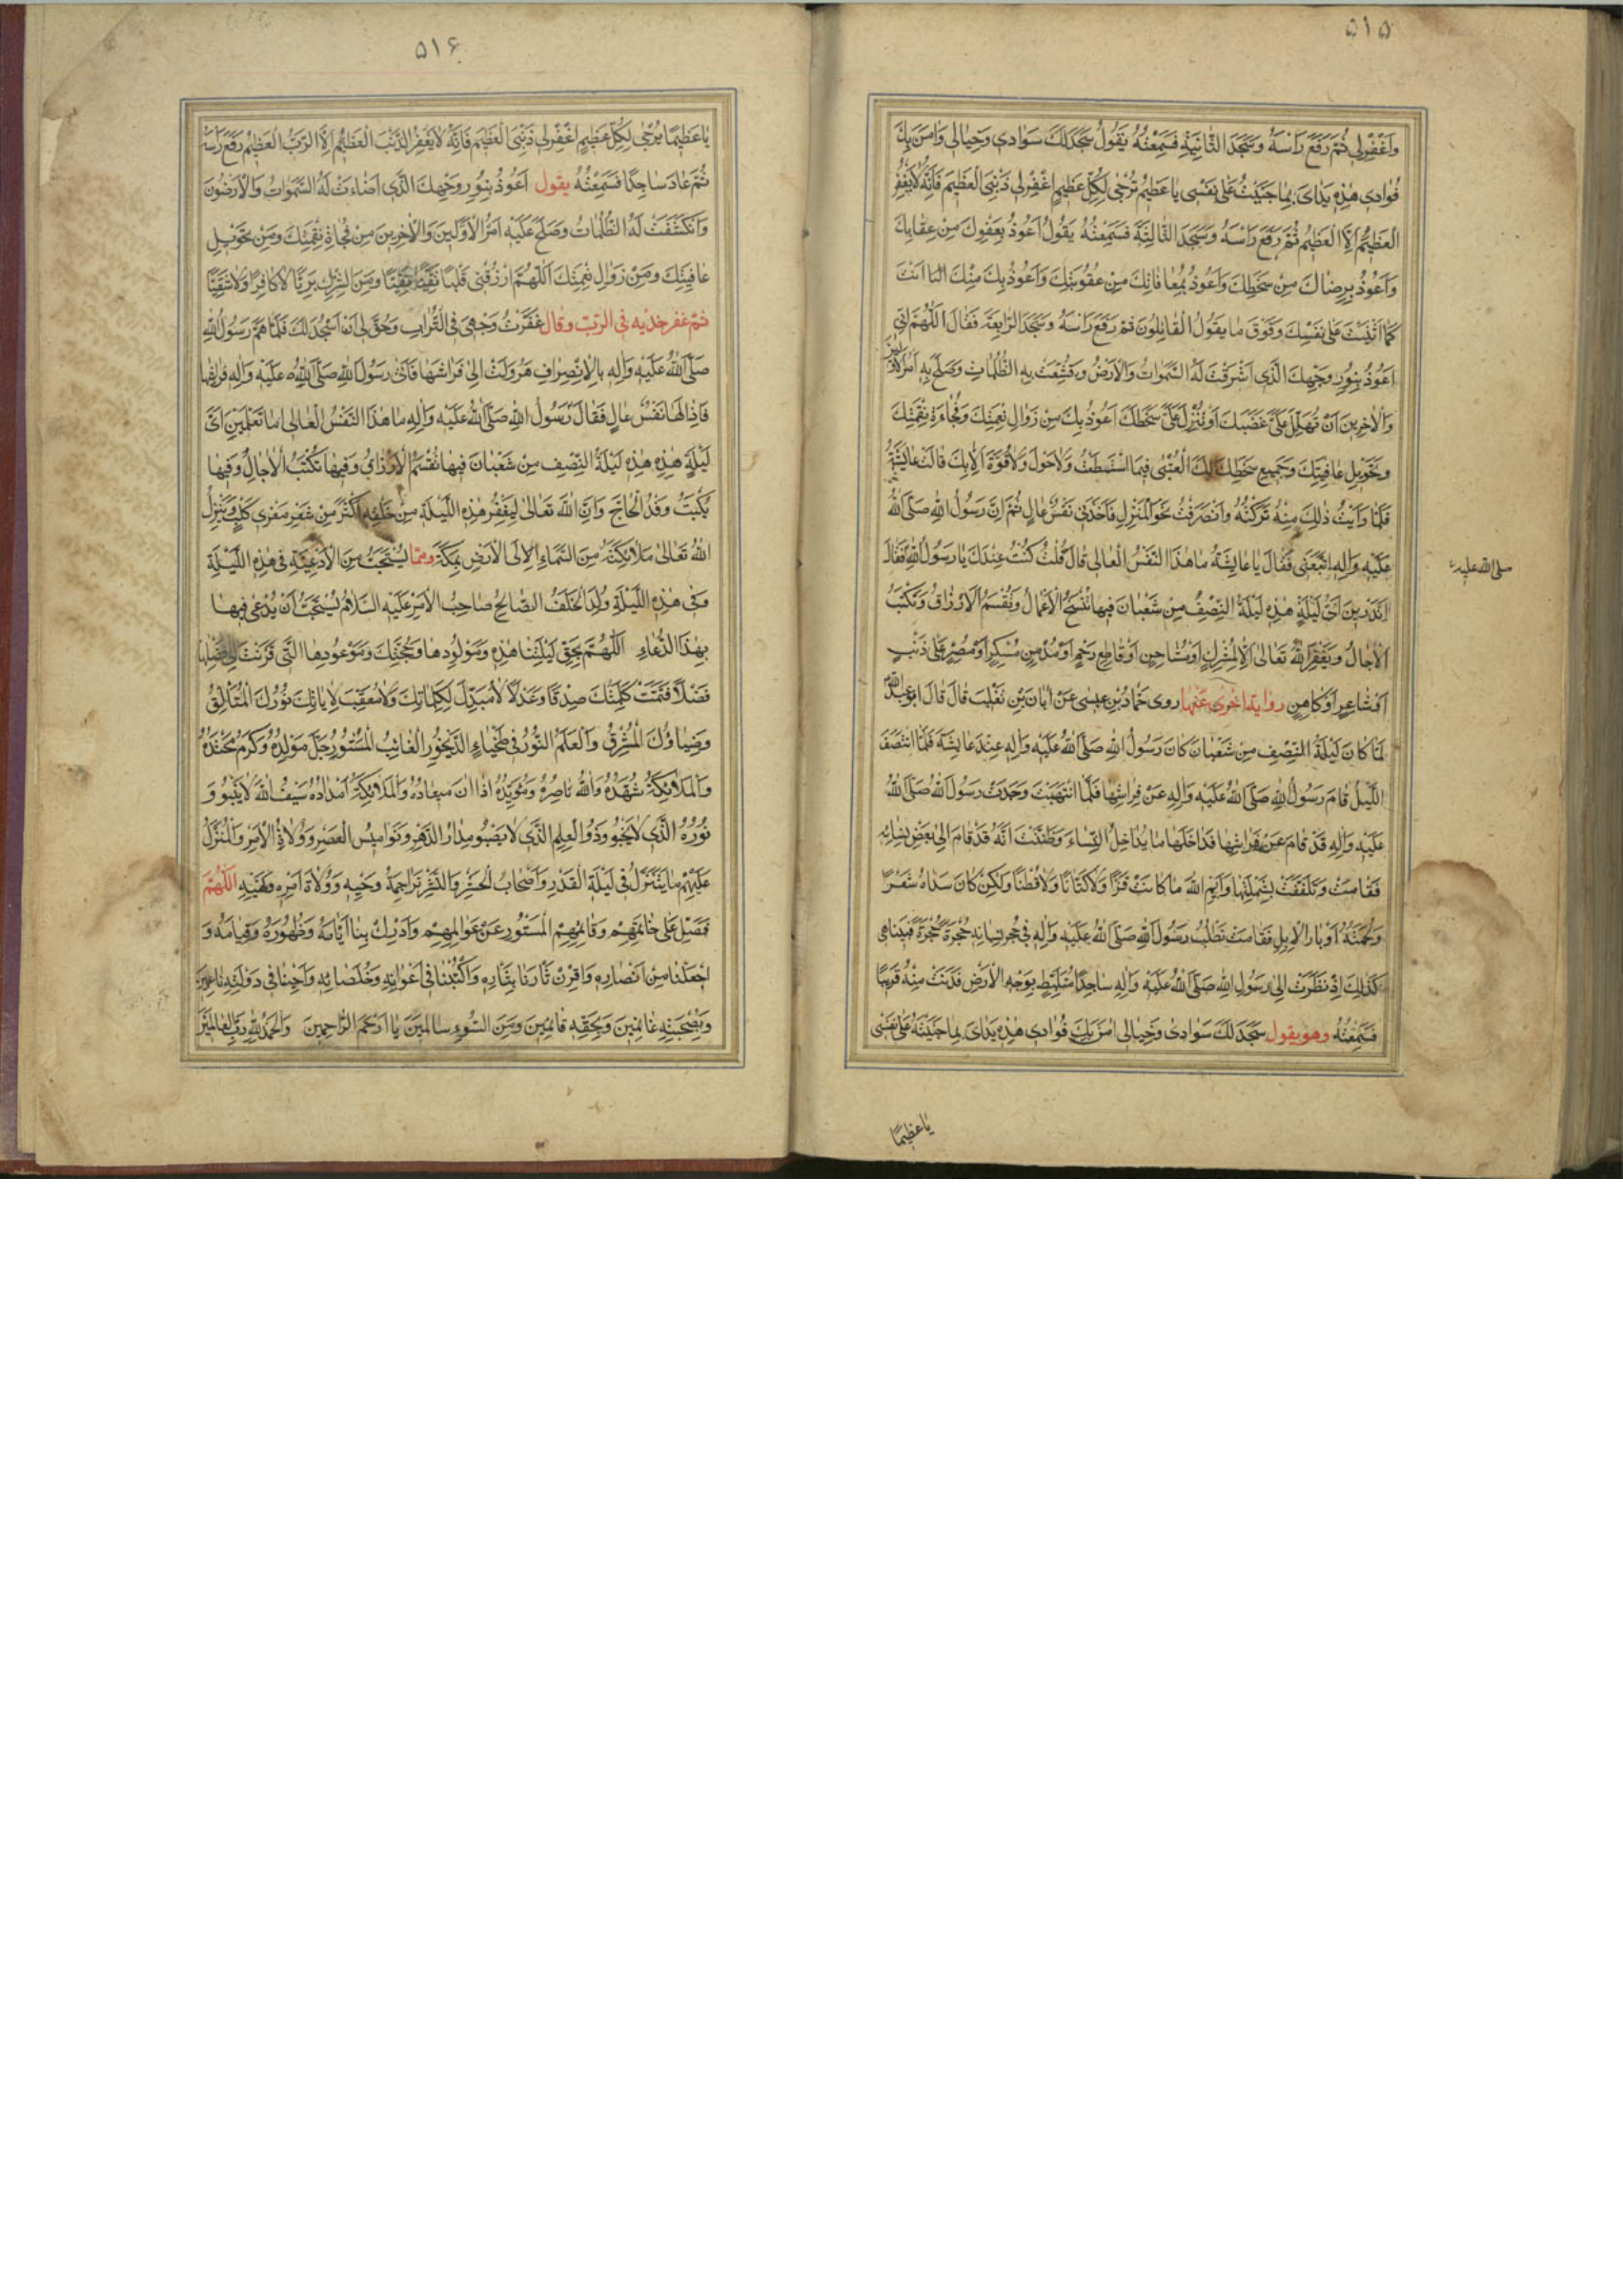 ۵۱۵
وَاغْفِرْلي ثُمَّ رَفَعَ رَاْسَهُ وَسَجَدَ الثّانِيَةَ فَسَمِعْتُهُ يَقُولُ سَجَدَ لَكَ سَوادي وَخِيالي وَامَنَ بِكَ
فُؤادي هٰذِهِ يَدايَ بِما جَنَيْتُ عَلىٰ نَفْسي يا عَظيمُ تُرْجىٰ لِكُلِّ عَظيمٍ اغْفِرْلي ذَنْبِيَ الْعَظيمَ فَاِنَّهُ لا يَغْفِرُ
الْعَظيمَ اِلَّا الْعَظيمُ ثُمَّ رَفَعَ رَاْسَهُ وَسَجَدَ الثّالِثَةَ فَسَمِعْتُهُ يَقُولُ اَعُوذُ بِعَفْوِكَ مِنْ عِقابِكَ
وَاَعُوذُ بِرِضاكَ مِنْ سَخَطِكَ وَاَعُوذُ بِمُعافاتِكَ مِنْ عُقُوبَتِكَ وَاَعُوذُ بِكَ مِنْكَ اَنْتَ
كَما اَثْنَيْتَ عَلىٰ نَفْسِكَ وَفَوْقَ ما يَقُولُ الْقائِلُونَ ثُمَّ رَفَعَ رَاْسَهُ وَسَجَدَ الرّابِعَةَ فَقالَ اَللّٰهُمَّ اِنّي
اَعُوذُ بِنُورِ وَجْهِكَ الَّذي اَشْرَقَتْ لَهُ السَّمٰواتُ وَالْاَرْضُ وَقُشِعَتْ بِهِ الظُّلُماتُ وَصَلُحَ بِهِ اَمْرُ الْاَوَّلينَ
وَالْاٰخِرينَ اَنْ تُحِلَّ عَلَيَّ غَضَبَكَ اَوْ تُنْزِلَ عَلَيَّ سَخَطَكَ اَعُوذُ بِكَ مِنْ زَوالِ نِعْمَتِكَ وَفُجاءَةِ نِقْمَتِكَ
وَتَحْويلِ عافِيَتِكَ وَجَميعِ سَخَطِكَ لَكَ الْعُتْبىٰ فيمَا اسْتَطَعْتُ وَلا حَوْلَ وَلا قُوَّةَ اِلّا بِكَ قالَتْ عايِشَةُ
فَلَمّا رَاَيْتُ ذٰلِكَ مِنْهُ تَرَكْتُهُ وَانْصَرَفْتُ نَحْوَ الْمَنْزِلِ فَاَخَذَني نَفَسٌ عالٍ ثُمَّ اِنَّ رَسُولَ اللّٰهِ صَلَّى اللّٰهُ
عَلَيْهِ وَاٰلِهِ اتَّبَعَني فَقالَ يا عايِشَةُ ما هٰذَا النَّفَسُ الْعالي قالَ قُلْتُ كُنْتُ عِنْدَكَ يا رَسُولَ اللّٰهِ فَقالَ
صلى الله عليه
اَتَدْرينَ اَيُّ لَيْلَةٍ هٰذِهِ لَيْلَةُ النِّصْفِ مِنْ شَعْبانَ فيها تُنْسَخُ الْاَعْمالُ وَتُقْسَمُ الْاَرْزاقُ وَتُكْتَبُ
الْاٰجالُ وَيَغْفِرُ اللّٰهُ تَعالىٰ اِلّا لِمُشْرِكٍ اَوْ مُشاحِنٍ اَوْ قاطِعِ رَحِمٍ اَوْ مُدْمِنِ مُسْكِرٍ اَوْ مُصِرٍّ عَلىٰ ذَنْبٍ
اَوْ شاعِرٍ اَوْ كاهِنٍ رواية اخرى عنها روى حَمّادُ بْنُ عيسىٰ عَنْ اَبانَ بْنِ تَغْلِبَ قالَ قالَ ابو عبد اللّٰه
لَمّا كانَ لَيْلَةُ النِّصْفِ مِنْ شَعْبانَ كانَ رَسُولُ اللّٰهِ صَلَّى اللّٰهُ عَلَيْهِ وَاٰلِهِ عِنْدَ عايِشَةَ فَلَمَّا انْتَصَفَ
اللَّيْلُ قامَ رَسُولُ اللّٰهِ صَلَّى اللّٰهُ عَلَيْهِ وَاٰلِهِ عَنْ فِراشِها فَلَمَّا انْتَبَهَتْ وَجَدَتْ رَسُولَ اللّٰهِ صَلَّى اللّٰهُ
عَلَيْهِ وَاٰلِهِ قَدْ قامَ عَنْ فِراشِها فَداخَلَها ما يُداخِلُ النِّساءَ وَظَنَّتْ اَنَّهُ قَدْ قامَ اِلىٰ بَعْضِ نِسائِهِ
فَقامَتْ وَتَلَفَّفَتْ بِشَمْلَتِها وَاَيْمُ اللّٰهِ ما كانَتْ قَزًّا وَلا كَتّانًا وَلا قُطْنًا وَلٰكِنْ كانَ سَداهُ شَعْرًا
وَلُحْمَتُهُ اَوْبارَ الْاِبِلِ فَقامَتْ تَطْلُبُ رَسُولَ اللّٰهِ صَلَّى اللّٰهُ عَلَيْهِ وَاٰلِهِ في حُجَرِ نِسائِهِ حُجْرَةً حُجْرَةً فَبَيْنا هِيَ
كَذٰلِكَ اِذْ نَظَرَتْ اِلىٰ رَسُولِ اللّٰهِ صَلَّى اللّٰهُ عَلَيْهِ وَاٰلِهِ ساجِدًا مُتَلَبِّطٍ بِوَجْهِ الْاَرْضِ فَدَنَتْ مِنْهُ قَريبًا
فَسَمِعَتْهُ وهو يقول سَجَدَ لَكَ سَوادي وَخِيالي اٰمَنَ بِكَ فُؤادي هٰذِهِ يَدايَ بِما جَنَيْتُهُ عَلىٰ نَفْسي
يا عظيمًا
۵۱۶
يا عَظيمًا يُرْجىٰ لِكُلِّ عَظيمٍ اغْفِرْلي ذَنْبِيَ الْعَظيمَ فَاِنَّهُ لا يَغْفِرُ الذَّنْبَ الْعَظيمَ اِلَّا الرَّبُّ الْعَظيمُ رَفَعَ رَاْسَهُ
ثُمَّ عادَ ساجِدًا فَسَمِعَتْهُ يقول اَعُوذُ بِنُورِ وَجْهِكَ الَّذي اَضاءَتْ لَهُ السَّمٰواتُ وَالْاَرَضُونَ
وَانْكَشَفَتْ لَهُ الظُّلُماتُ وَصَلُحَ عَلَيْهِ اَمْرُ الْاَوَّلينَ وَالْاٰخِرينَ مِنْ فُجاْةِ نِقْمَتِكَ وَمِنْ تَحْويلِ
عافِيَتِكَ وَمِنْ زَوالِ نِعْمَتِكَ اَللّٰهُمَّ ارْزُقْني قَلْبًا تَقِيًّا نَقِيًّا وَمِنَ الشِّرْكِ بَريئًا لا كافِرًا وَلا شَقِيًّا
ثم عفر خديه في الترب وقال عَفَّرْتُ وَجْهي فِي التُّرابِ وَحُقَّ لي اَنْ اَسْجُدَ لَكَ فَلَمّا هَمَّ رَسُولُ اللّٰهِ
صَلَّى اللّٰهُ عَلَيْهِ وَاٰلِهِ بِالْاِنْصِرافِ هَرْوَلَتْ اِلىٰ فِراشِها فَاَتىٰ رَسُولُ اللّٰهِ صَلَّى اللّٰهُ عَلَيْهِ وَاٰلِهِ فِراشَها
فَاِذا لَها نَفَسٌ عالٍ فَقالَ رَسُولُ اللّٰهِ صَلَّى اللّٰهُ عَلَيْهِ وَاٰلِهِ ما هٰذَا النَّفَسُ الْعالي اَما تَعْلَمينَ اَيُّ
لَيْلَةٍ هٰذِهِ هٰذِهِ لَيْلَةُ النِّصْفِ مِنْ شَعْبانَ فيها تُقْسَمُ الْاَرْزاقُ وَفيها تُكْتَبُ الْاٰجالُ وَفيها
يُكْتَبُ وَفْدُ الْحاجِّ وَاِنَّ اللّٰهَ تَعالىٰ لَيَغْفِرُ هٰذِهِ اللَّيْلَةَ مِنْ خَلْقِهِ اَكْثَرَ مِنْ شَعْرِ مِعْزى كَلْبٍ وَيُنْزِلُ
اللّٰهُ تَعالىٰ مَلائِكَتَهُ مِنَ السَّماءِ اِلَى الْاَرْضِ بِمَكَّةَ ومما يُسْتَحَبُّ مِنَ الْاَدْعِيَةِ في هٰذِهِ اللَّيْلَةِ
وَفي هٰذِهِ اللَّيْلَةِ وُلِدَ الْخَلَفُ الصّالِحُ صاحِبُ الْاَمْرِ عَلَيْهِ السَّلامُ يُسْتَحَبُّ اَنْ يُدْعىٰ فيها
بِهٰذَا الدُّعاءِ اَللّٰهُمَّ بِحَقِّ لَيْلَتِنا هٰذِهِ وَمَوْلُودِها وَحُجَّتِكَ وَمَوْعُودِهَا الَّتي قَرَنْتَ اِلىٰ فَضْلِها
فَضْلًا فَتَمَّتْ كَلِمَتُكَ صِدْقًا وَعَدْلًا لا مُبَدِّلَ لِكَلِماتِكَ وَلا مُعَقِّبَ لِاٰياتِكَ نُورُكَ الْمُتَاَلِّقُ
وَضِياؤُكَ الْمُشْرِقُ وَالْعَلَمُ النُّورُ في طَخْياءِ الدَّيْجُورِ الْغائِبُ الْمَسْتُورُ جَلَّ مَوْلِدُهُ وَكَرُمَ مَحْتِدُهُ
وَالْمَلائِكَةُ شُهَّدُهُ وَاللّٰهُ ناصِرُهُ وَمُؤَيِّدُهُ اِذا اٰنَ ميعادُهُ وَالْمَلائِكَةُ اَمْدادُهُ سَيْفُ اللّٰهِ لا يَنْبُو وَ
نُورُهُ الَّذي لا يَخْبُو وَذُو الْعِلْمِ الَّذي لا يَصْبُو مَدارُ الدَّهْرِ وَنَواميسُ الْعَصْرِ وَوُلاةُ الْاَمْرِ وَالْمُنَزَّلُ
عَلَيْهِمْ ما يَتَنَزَّلُ في لَيْلَةِ الْقَدْرِ وَاَصْحابُ الْحَشْرِ وَالنَّشْرِ تَراجِمَةُ وَحْيِهِ وَوُلاةُ اَمْرِهِ وَنَهْيِهِ اللهم
فَصَلِّ عَلىٰ خاتَمِهِمْ وَقائِمِهِمُ الْمَسْتُورِ عَنْ عَوالِمِهِمْ وَاَدْرِكْ بِنا اَيّامَهُ وَظُهُورَهُ وَقِيامَهُ وَ
اجْعَلْنا مِنْ اَنْصارِهِ وَاقْرِنْ ثارَنا بِثارِهِ وَاكْتُبْنا في اَعْوانِهِ وَخُلَصائِهِ وَاَحْيِنا في دَوْلَتِهِ ناعِمينَ
وَبِصُحْبَتِهِ غانِمينَ وَبِحَقِّهِ قائِمينَ وَمِنَ السُّوءِ سالِمينَ يا اَرْحَمَ الرّاحِمينَ وَالْحَمْدُ لِلّٰهِ رَبِّ الْعالَمينَ